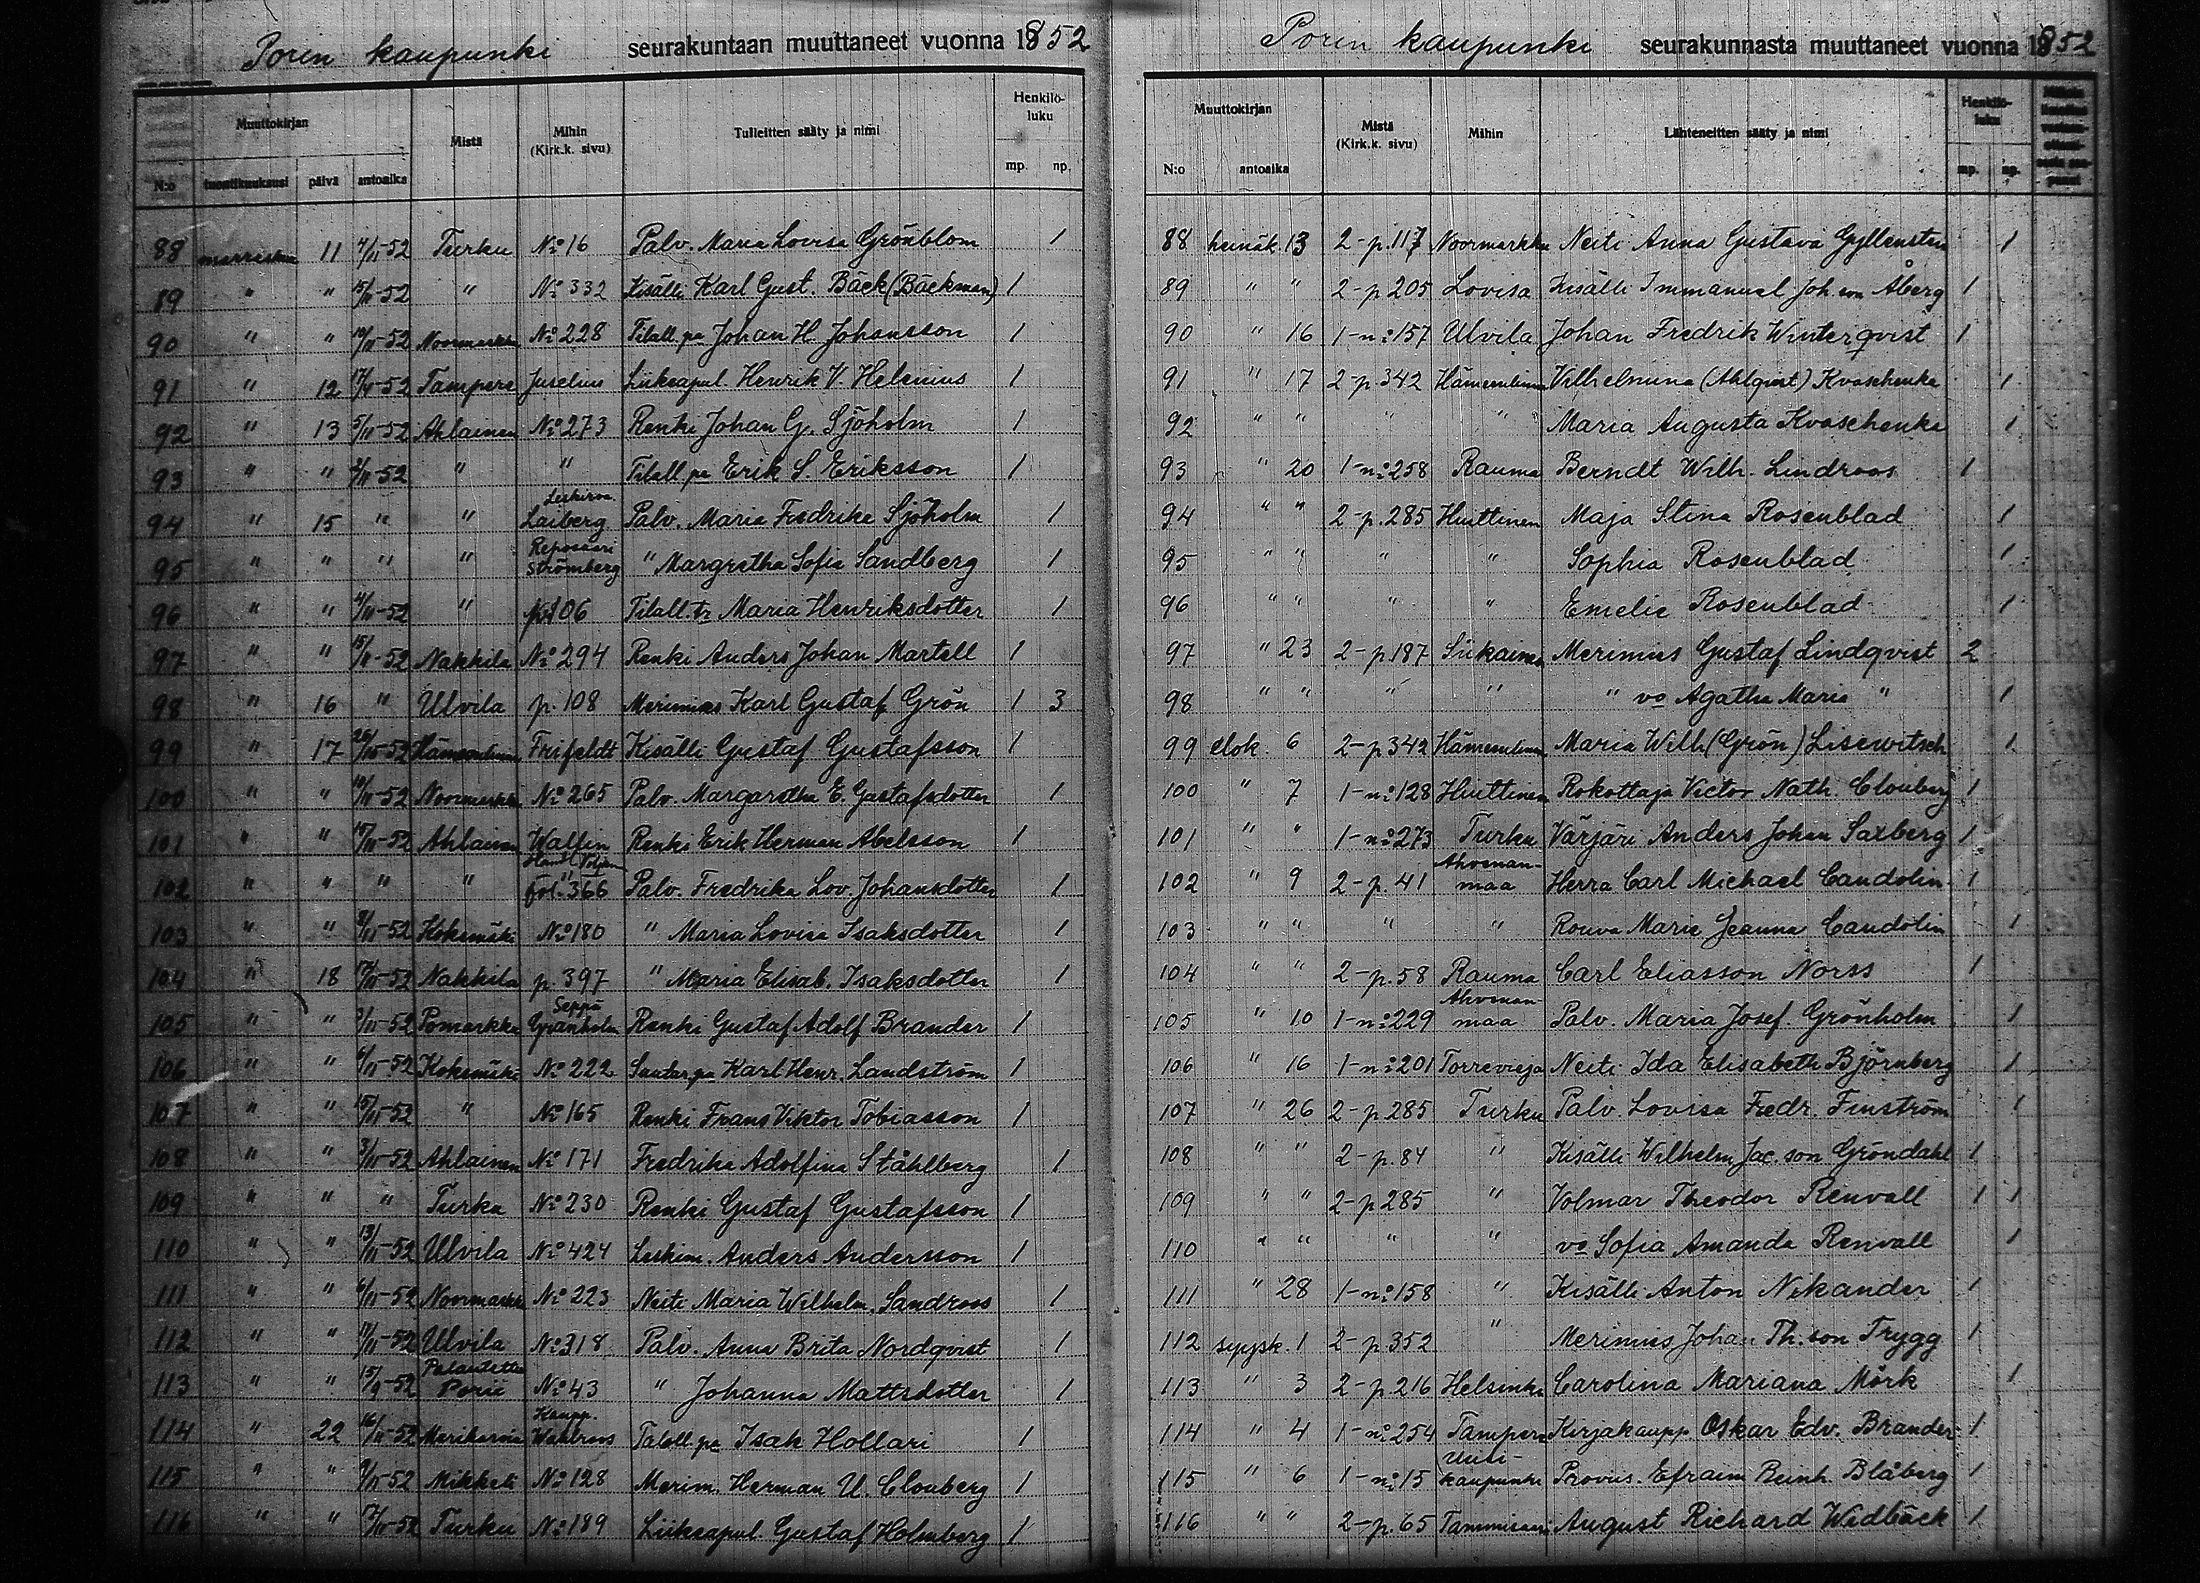 Porin kaupunki seurakuntaan muuttaneet vuonna 1852
Muuttokirjan Mistä Mihin (Kirk.k. sivu) Tulleitten sääty ja nimi Henkilö-luku
N:o tuontikuukausi päivä antoaika mp. np.
88 marraskuu 11 4/11-52 Turku No 16 Palv. Maria Lovisa Grönblom 1
89 " " 15/11-52 " No 332 Kisälli Karl Gust. Bäck (Bäckman) 1
90 " " 10/11-52 Noormarkku No 228 Tilall. pa Johan H. Johansson 1
91 " 12 17/11-52 Tampere Juselius Liikeapul. Henrik V. Helenius 1
92 " 13 5/11-52 Ahlainen No 273 Renki Johan G. Sjöholm 1
93 " " 2/11-52 " " Tilall. pa Erik S. Eriksson 1
94 " 15 " " Leskirva Laiberg Palv. Maria Fredrika Sjöholm 1
95 " " " " Reposaari Strömberg " Margretha Sofia Sandberg 1
96 " " 4/11-52 " p 106 Tilall. tr Maria Henriksdotter 1
97 " " 15/11-52 Nakkila No 294 Renki Anders Johan Martell 1
98 " 16 " Ulvila p. 108 Merimies Karl Gustaf Grön 1 3
99 " 17 Hämeenlinna Frifeldt Kisälli Gustaf Gustafsson 1
100 " " 10/11-52 Noormarkku No 265 Palv. Margaretha E. Gustafsdotter 1
101 " " 15/11-52 Ahlainen Walfin Renki Erik Herman Abelsson 1
102 " " " " fol. 366 Palv. Fredrika Lov. Johansdotter 1
103 " " 8/11-52 Kokemäki No 180 " Maria Lovisa Isaksdotter 1
104 " 18 17/11-52 Nakkila p 397 " Maria Elisab. Isaksdotter 1
105 " " Pomarkku Seppä Granholm Renki Gustaf Adolf Brander 1
106 " " 6/11-52 Kokemäki No 222 Suutar. pa Karl Henr. Landström 1
107 " " 15/11-52 " No 165 Renki Frans Viktor Tobiasson 1
108 " " 3/11-52 Ahlainen No 171 Fredrika Adolfina Ståhlberg 1
109 " " " Turku No 230 Renki Gustaf Gustafsson 1
110 " " 13/11-52 Ulvila No 424 Leskim. Anders Andersson 1
111 " " 6/11-52 Noormarkku No 223 Neiti Maria Wilhelm. Sandroos 1
112 " " 17/11-52 Ulvila No 318 Palv. Anna Brita Nordqvist 1
113 " " 15/9-52 Palautettu Porii No 43 " Johanna Mattsdotter 1
114 " 22 16/11-52 Merikarvia Kaupp. Wahlroos Taloll. pa Isak Hollari 1
115 " " 9/11-52 Mikkeli No 128 Merim. Herman U. Clouberg 1
116 " " 17/11-52 Turku No 189 Liikeapul. Gustaf Holmberg 1
Porin kaupunki seurakunnasta muuttaneet vuonna 1852
Muuttokirjan Mistä (Kirk.k. sivu) Mihin Lähteneitten sääty ja nimi Henkilö-luku
N:o antoaika mp. np.
88 heinäk. 13 2-p. 117 Noormarkku Neiti Anna Gustava Gyllensten 1
89 " " 2-p 205 Lovisa Kisälli Immanuel Joh. son Åberg 1
90 " 16 1-no 157 Ulvila Johan Fredrik Winterqvist 1
91 " 17 2-p. 342 Hämeenlinna Vilhelmina (Ahlqvist) Kvaschenka 1
92 " " " " Maria Augusta Kvaschenka 1
93 " 20 1-no 258 Rauma Berndt Wilh. Lindroos 1
94 " " 2-p. 285 Huittinen Maja Stina Rosenblad 1
95 " " " " Sophia Rosenblad 1
96 " " " " Emelie Rosenblad 1
97 " 23 2-p. 187 Siikainen Merimies Gustaf Lindqvist 2
98 " " " " " vo Agatha Maria " 1
99 elok. 6 2-p 342 Hämeenlinna Maria Wilh. (Grön) Lisewitsch 1
100 " 7 1-no 128 Huittinen Rokottaja Victor Nath. Clouberg 1
101 " " 1-no 273 Turku Värjäri Anders Johan Saxberg 1
102 " 9 2-p. 41 Ahvenan-maa Herra Carl Michael Candolin 1
103 " " " " Rouva Marie Jeanna Candolin 1
104 " " 2-p. 58 Rauma Carl Eliasson Norss 1
105 " 10 1-no 229 Ahvenan-maa Palv. Maria Josef. Grönholm 1
106 " 16 1-no 201 Torrevieja Neiti Ida Elisabeth Björnberg 1
107 " 26 2-p 285 Turku Palv. Lovisa Fredr. Finström 1
108 " " 2-p. 84 " Kisälli Wilhelm Jac. son Gröndahl 1
109 " " 2-p 285 " Volmar Theodor Renvall 1 1
110 " " " " vo Sofia Amanda Renvall 1
111 " 28 1-no 158 " Kisälli Anton Nikander 1
112 syysk. 1 2-p. 352 " Merimies Johan Th. son Trygg 1
113 " 3 2-p. 216 Helsinki Carolina Mariana Mörk 1
114 " 4 1-no 254 Tampere Kirjakaupp. Oskar Edv. Brander 1
115 " 6 1-no 15 Uusi-kaupunki Proviis. Efraim Reinh. Blåberg 1
116 " " 2-p. 65 Tammisaari August Richard Widbäck 1